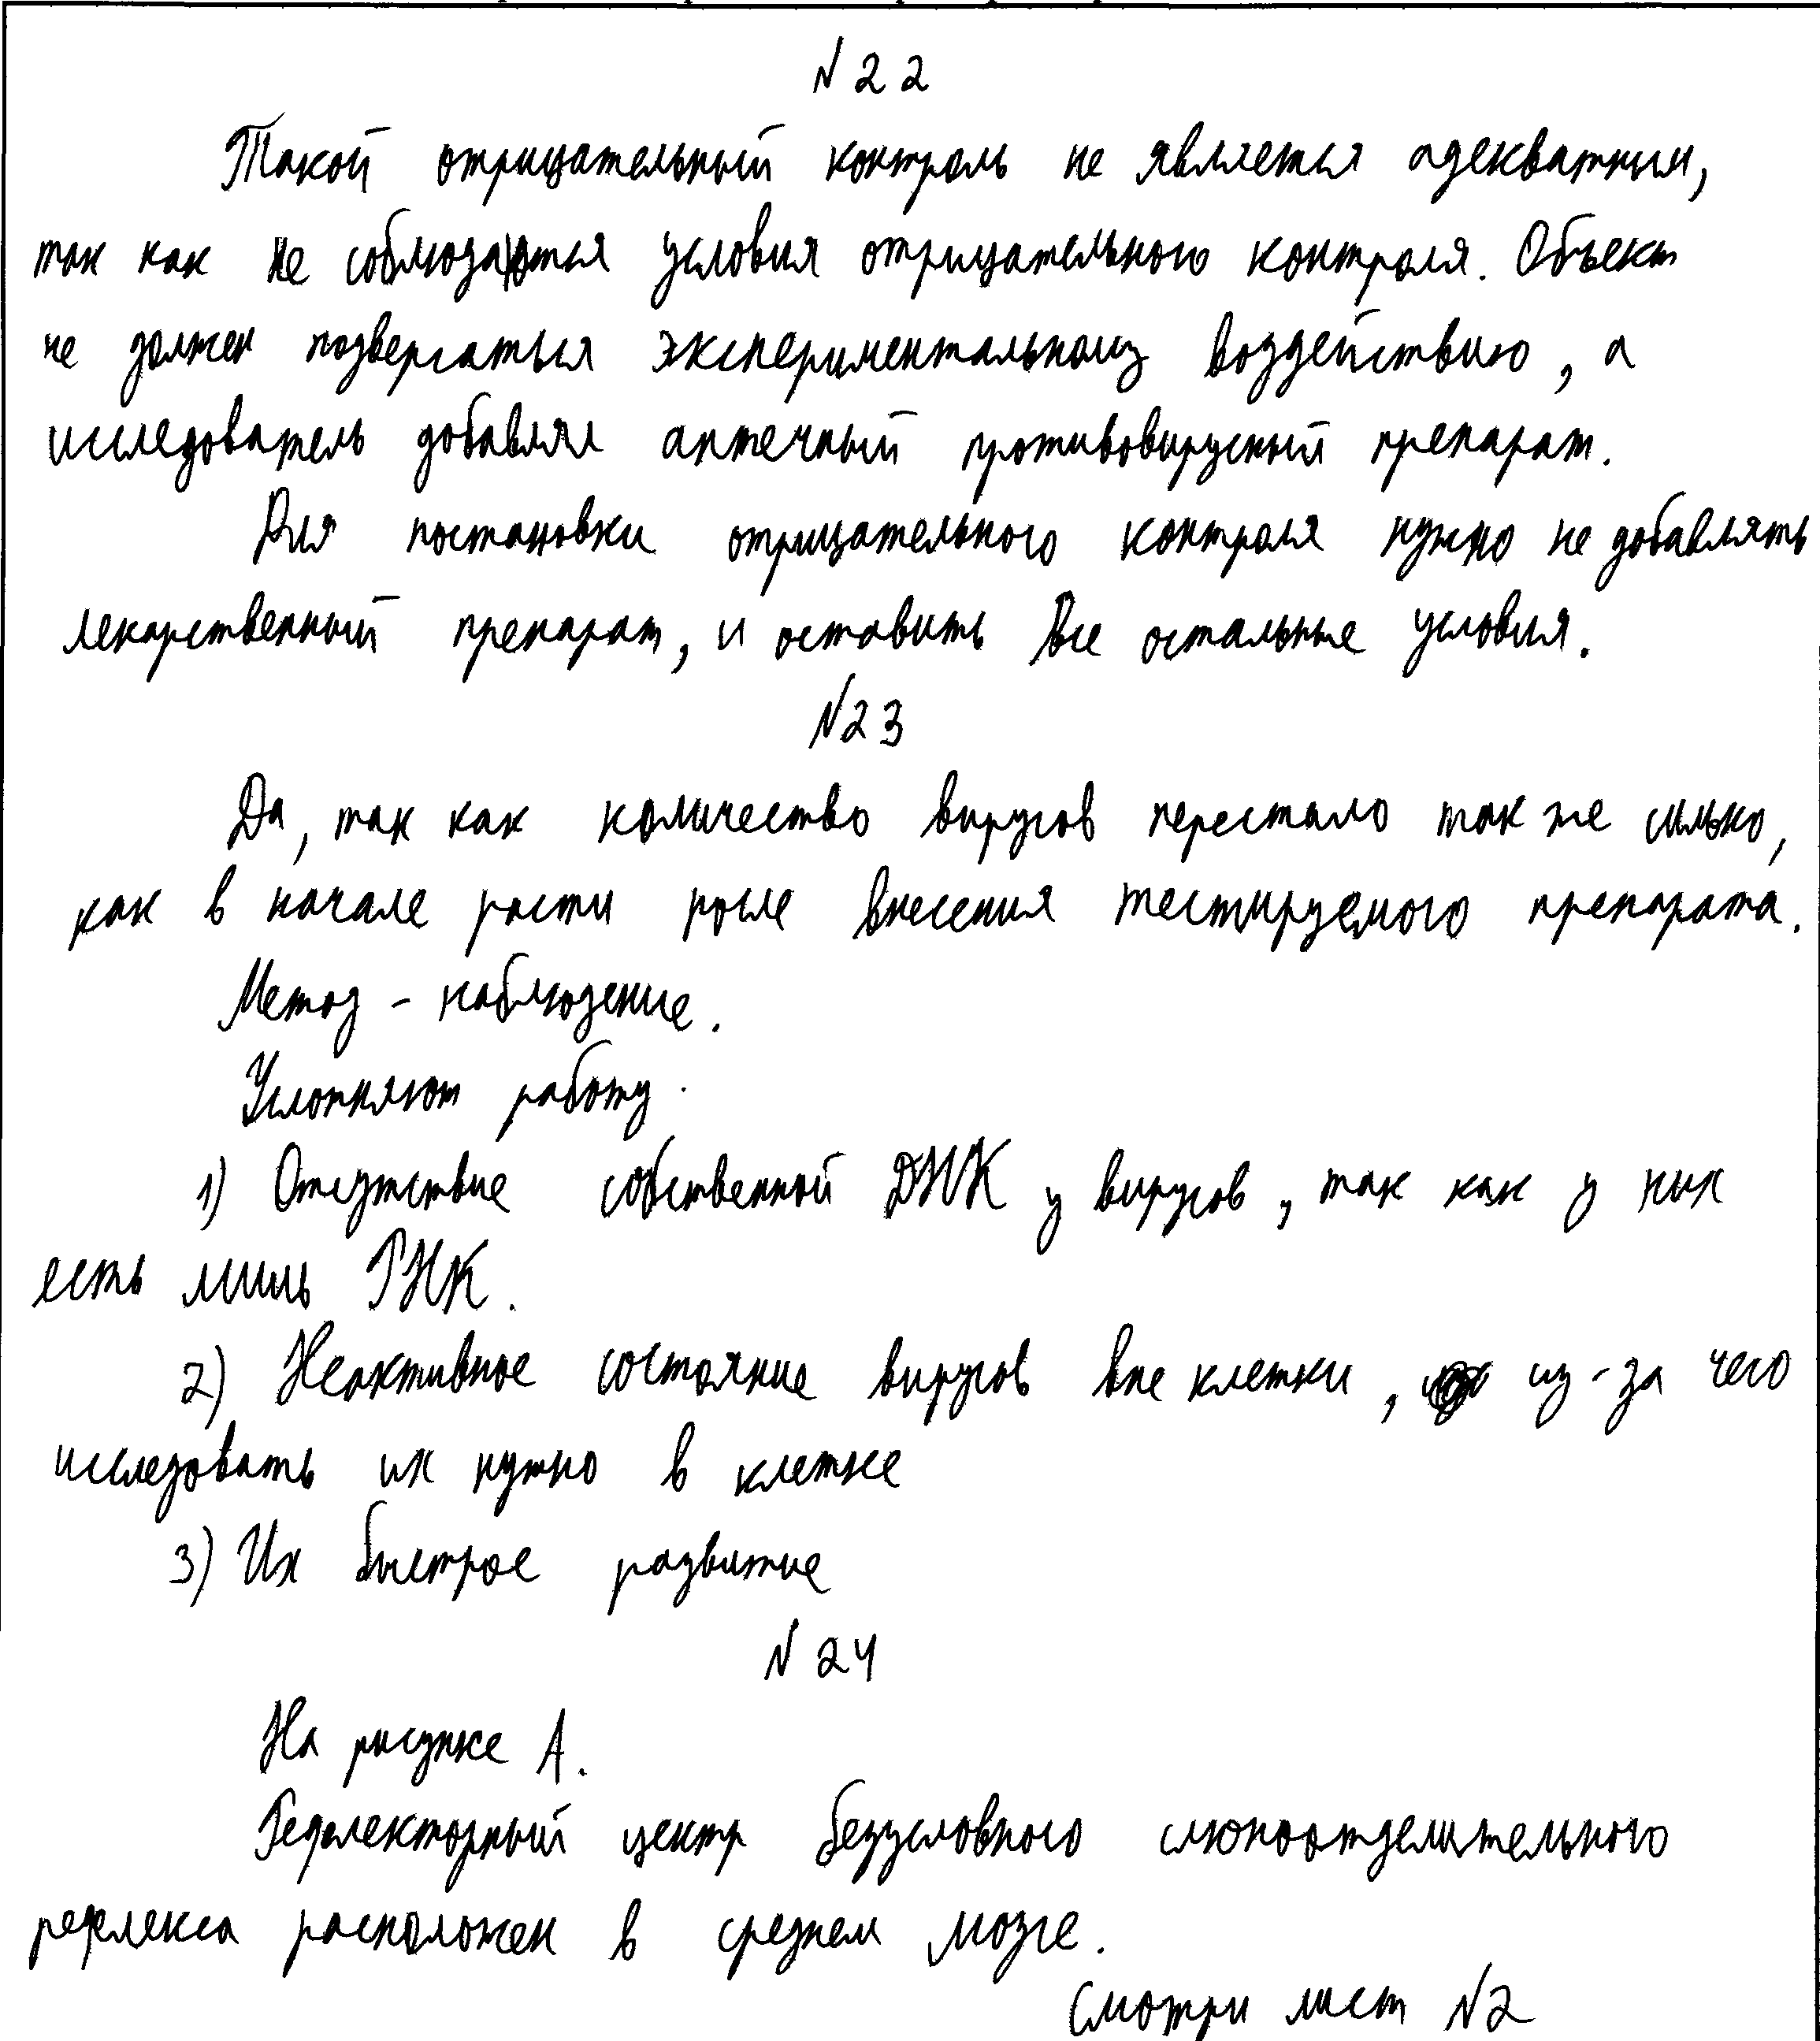 №22
Такой отрицательный контроль не является адекватным,
так как не соблюдаются условия отрицательного контроля. Объект
не должен подвергаться экспериментальному воздействию, а
исследователь добавлял аптечный противовирусный препарат.
Для постановки отрицательного контроля нужно не добавлять
лекарственный препарат, и оставить все остальные условия.
№23
Да, так как количество вирусов перестало так же сильно,
как в начале расти после внесения тестируемого препарата.
Метод - наблюдение.
Усложняют работу.
1) Отсутствие собственной ДНК у вирусов, так как у них
есть лишь РНК.
2) Неактивное состояние вирусов вне клетки, из-за чего
исследовать их нужно в клетке
3) Их быстрое развитие
№24
На рисунке А.
Рефлекторный центр безусловного слюноотделительного
рефлекса расположен в среднем мозге.
Смотри лист №2